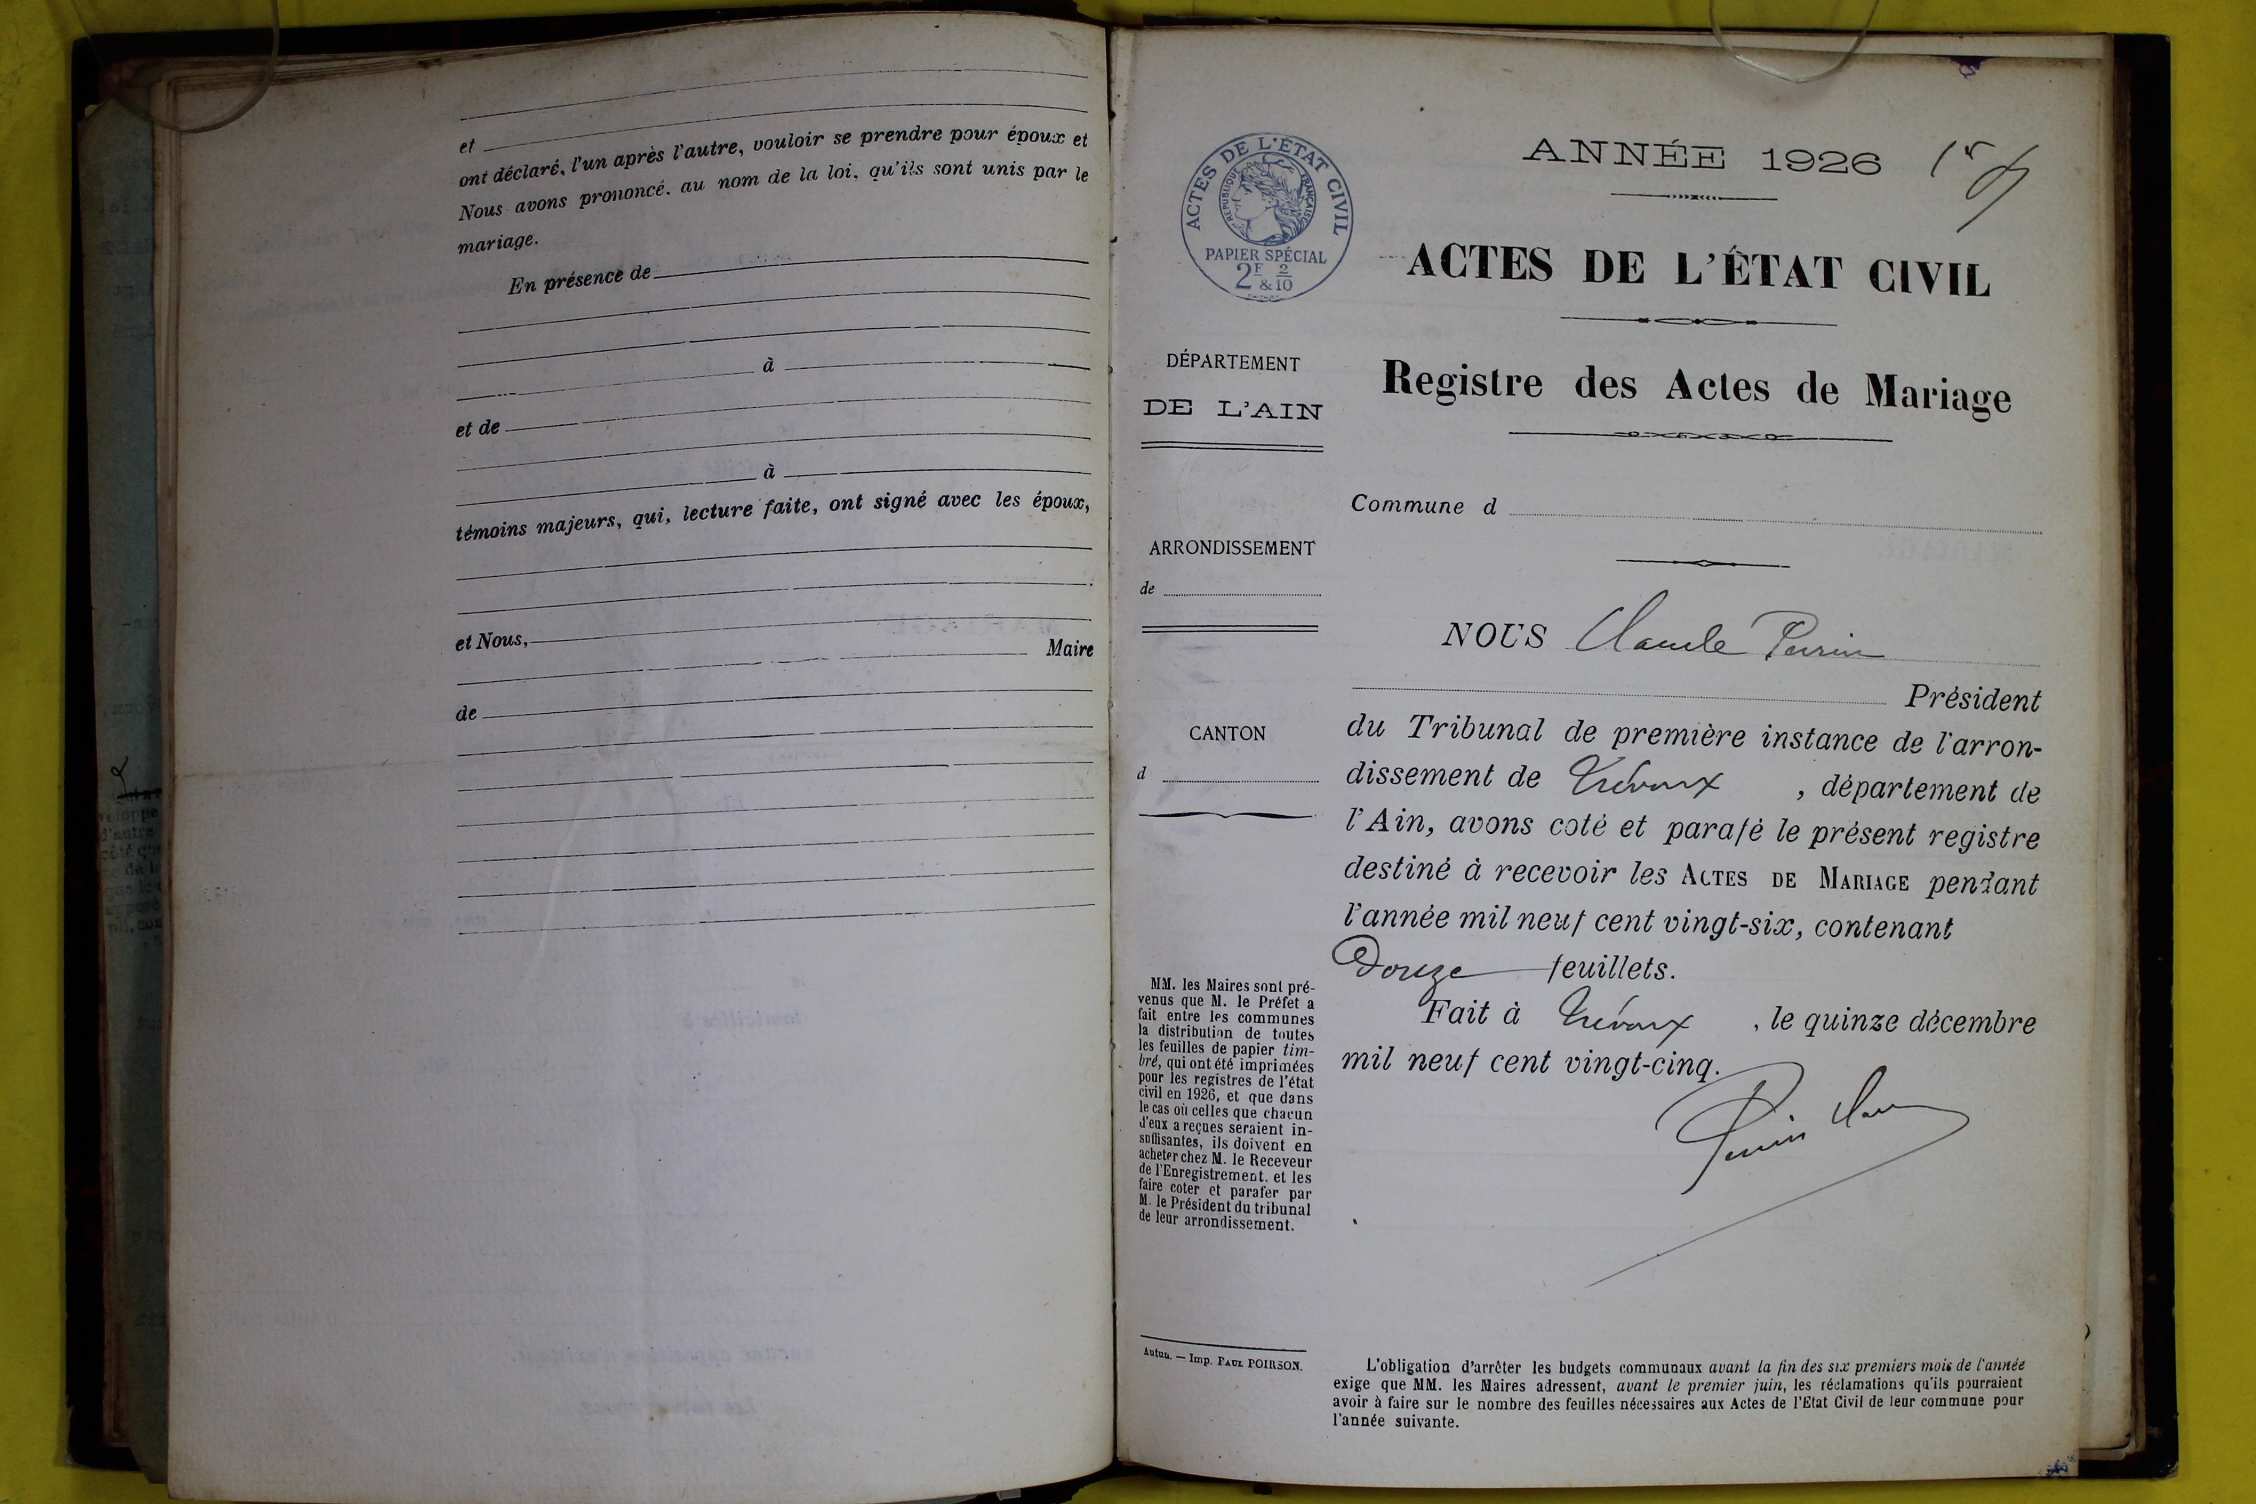 et
ont déclaré, l'un après l'autre, vouloir se prendre pour époux et
Nous avons prononcé, au nom de la loi, qu'ils sont unis par le
mariage.
En présence de
à
et de
à
témoins majeurs, qui, lecture faite, ont signé avec les époux,
et Nous,
Maire
de
ACTES DE L'ÉTAT CIVIL
RÉPUBLIQUE FRANÇAISE
PAPIER SPÉCIAL
2F & 2/10
DÉPARTEMENT
DE L'AIN
ARRONDISSEMENT
de
CANTON
d
MM. les Maires sont pré-
venus que M. le Préfet a
fait entre les communes
la distribution de toutes
les feuilles de papier tim-
bré, qui ont été imprimées
pour les registres de l'état
civil en 1926, et que dans
le cas où celles que chacun
d'eux a reçues seraient in-
suffisantes, ils doivent en
acheter chez M. le Receveur
de l'Enregistrement, et les
faire coter et parafer par
M. le Président du tribunal
de leur arrondissement.
Autun. — Imp. PAUL POIRSON.
ANNÉE 1926
1r
ACTES DE L'ÉTAT CIVIL
Registre des Actes de Mariage
Commune d
NOUS Claude Perrin
Président
du Tribunal de première instance de l'arron-
dissement de Trévoux , département de
l'Ain, avons coté et parafé le présent registre
destiné à recevoir les ACTES DE MARIAGE pendant
l'année mil neuf cent vingt-six, contenant
Douze feuillets.
Fait à Trévoux , le quinze décembre
mil neuf cent vingt-cinq.
Perrin Claude
L'obligation d'arrêter les budgets communaux avant la fin des six premiers mois de l'année
exige que MM. les Maires adressent, avant le premier juin, les réclamations qu'ils pourraient
avoir à faire sur le nombre des feuilles nécessaires aux Actes de l'Etat Civil de leur commune pour
l'année suivante.